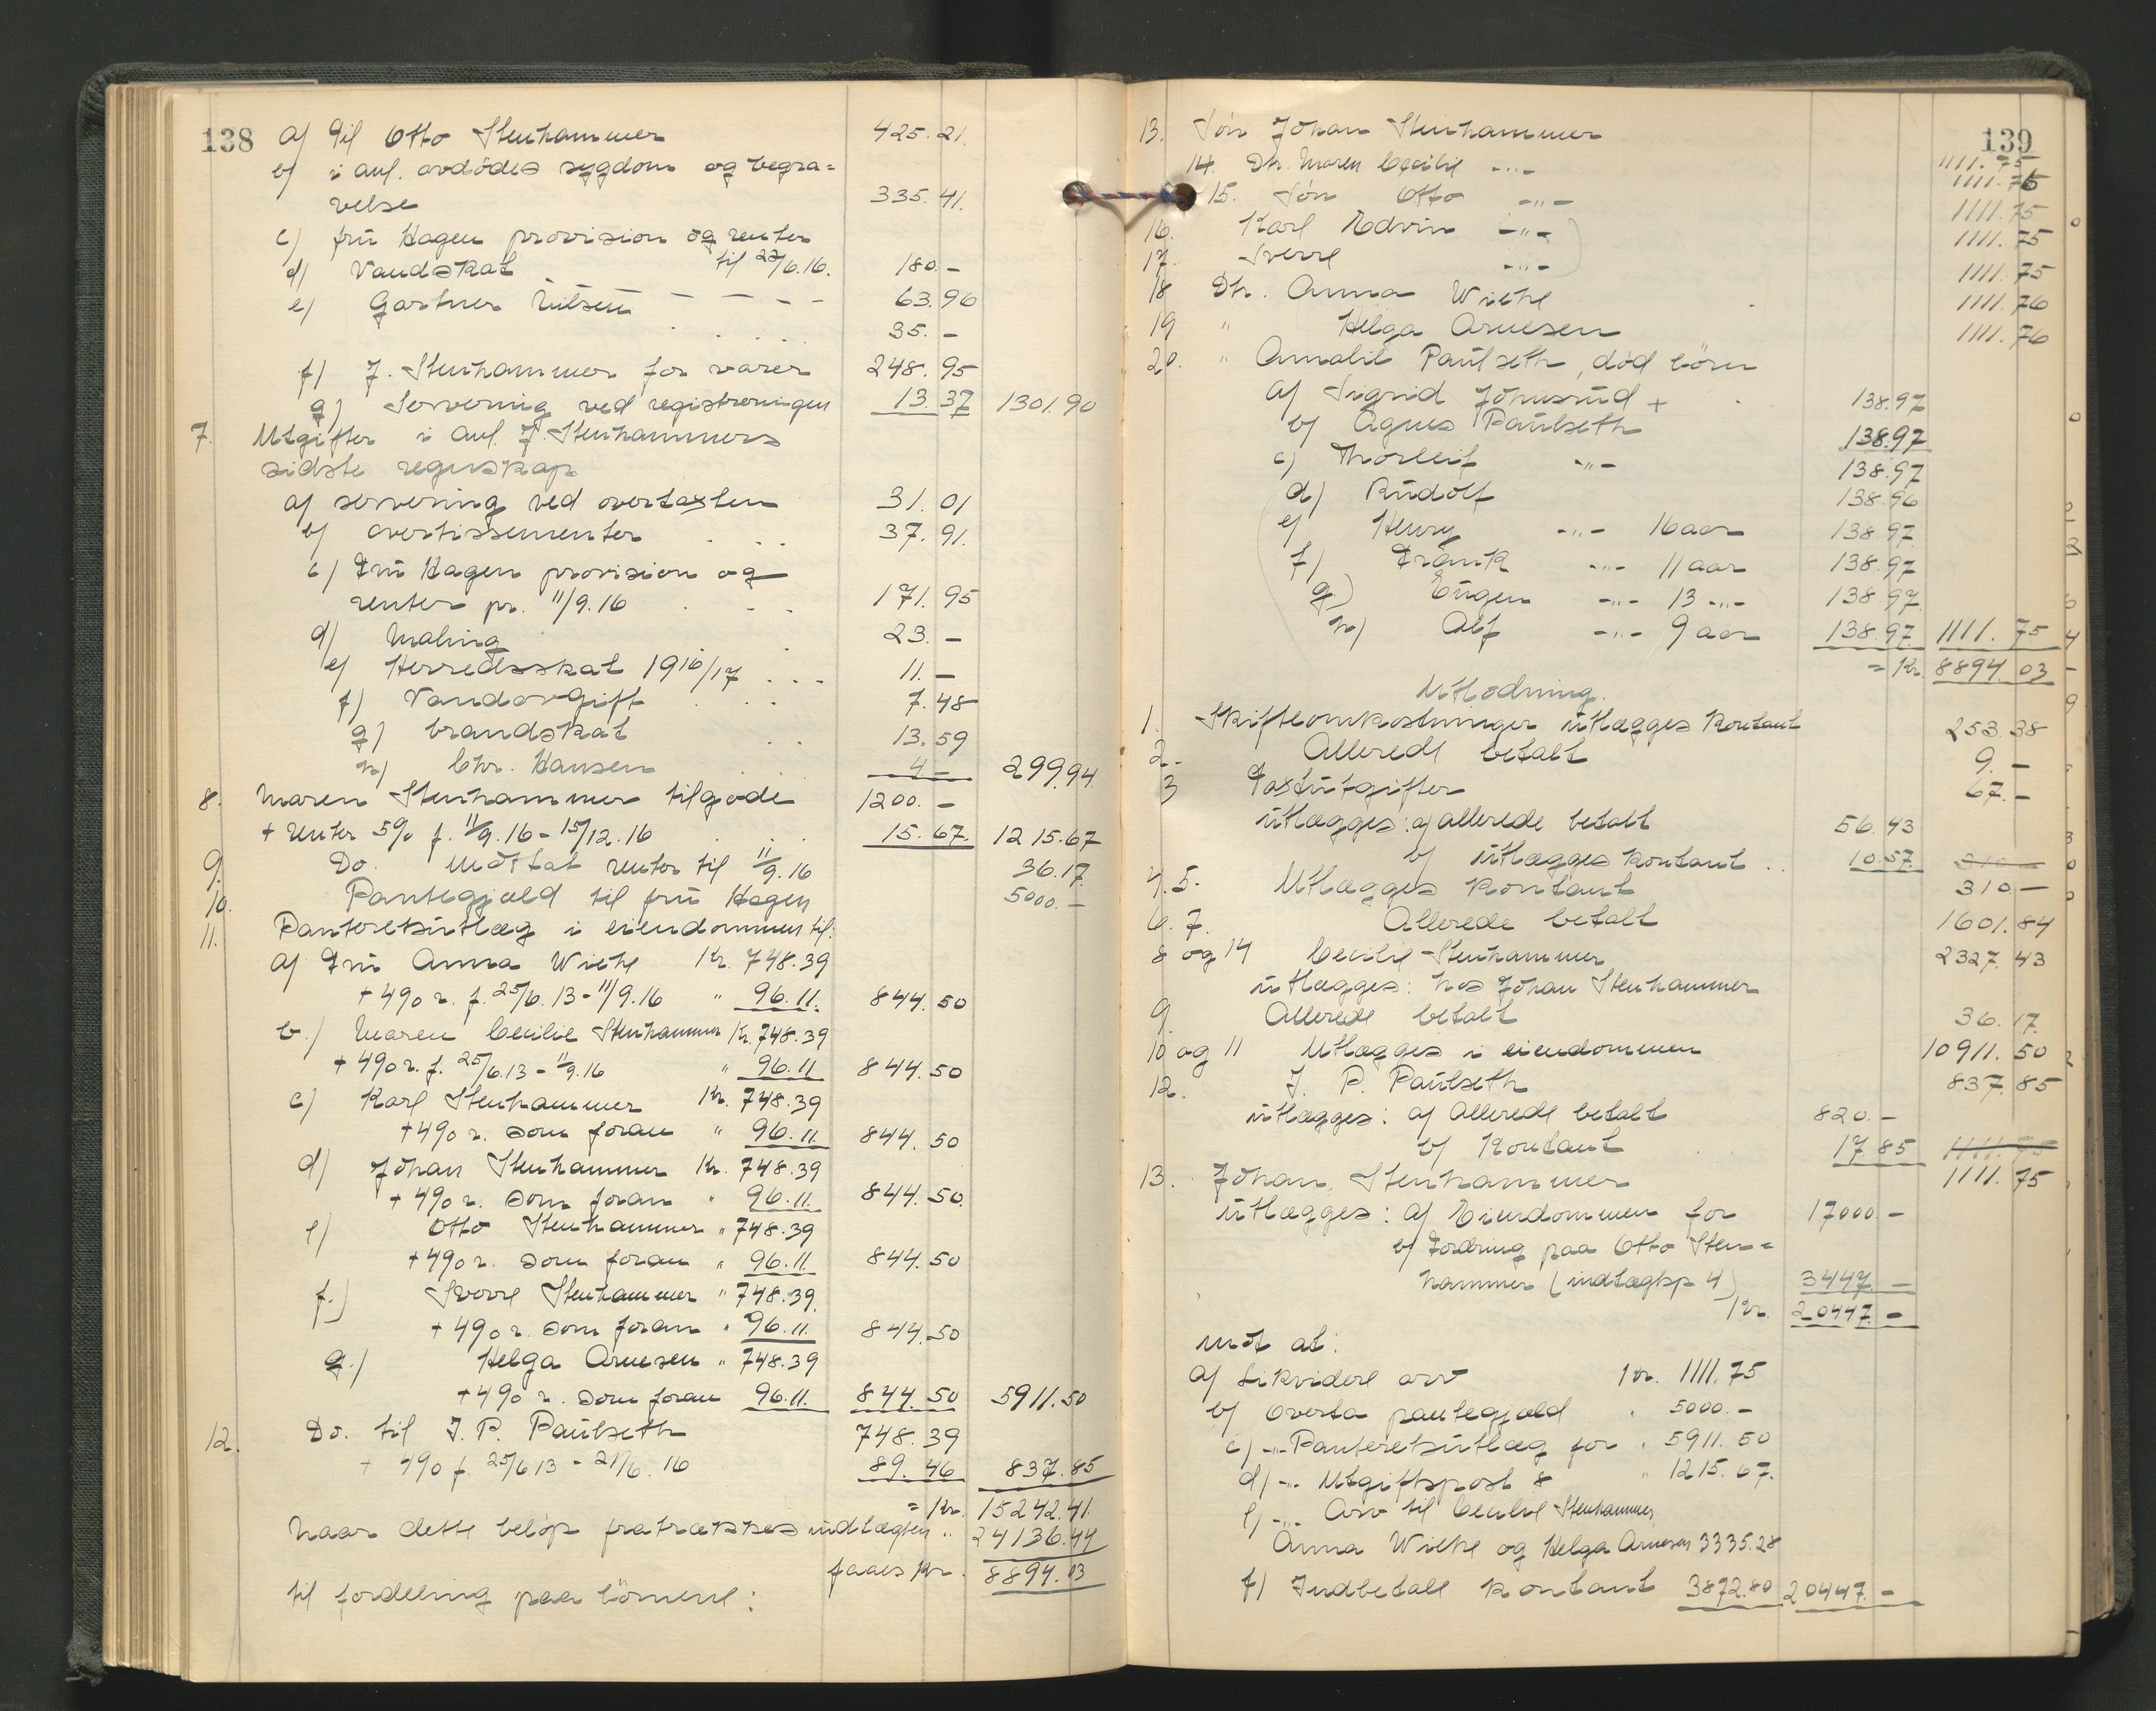 138 a) Til Otto Stenhammer 425.21.
b) i anl. avdödes sygdom og begra=
velse 335.41.
c) fru Hagen provision og renter
til 22/6.16. 180.-
d) Vandskat 63.96
e) Gartner Nilsen 35.-
f) J. Stenhammer for varer 248.95
g) Servering ved registreringen 13.37 1301.90
7. Utgifter i anl. J. Stenhammers
sidste regnskap
a) servering ved overtaxten 31.01
b) avertissementer 37.91.
c) Fru Hagen provision og
renter pr. 11/9.16 171.95
d) Maling 23.-
e) Herredsskat 1916/17 11.-
f) Vandavgift 7.48
g) brandskat 13.59
h) Chr. Hansen 4- 299.94.
8. Maren Stenhammer tilgode 1200.-
+ renter 5% f. 11/9.16 - 15/12.16 15.67. 1215.67
9. Do. mottat renter til 11/9.16 36.17.
10. Pantegjæld til fru Hagen 5000.-
11. Panteretsutlæg i eiendommen til:
a) Fru Anna Wiehe Kr. 748.39
+ 4% r. f. 25/6.13 - 11/9.16 " 96.11. 844.50
b.) Maren Cecilie Stenhammer Kr. 748.39
+ 4% r. f. 25/6.13 - 11/9.16 " 96.11 844.50
c) Karl Stenhammer Kr. 748.39
+ 4% r. som foran " 96.11. 844.50
d) Johan Stenhammer Kr. 748.39
+ 4% r. som foran " 96.11. 844.50.
e) Otto Stenhammer " 748.39
+ 4% r. som foran " 96.11. 844.50
f.) Sverre Stenhammer " 748.39.
+ 4% r. som foran " 96.11. 844.50
g.) Helga Arnesen " 748.39
+ 4% r. som foran 96.11. 844.50 5911.50
12. Do. til J. P. Paulseth 748.39
+ 4% f. 25/6.13 - 21/6.16 89.46 837.85
= Kr. 15242.41.
Naar dette beløp fratrækkes indtægten " 24136.44
faaes Kr. 8894.03
til fordeling paa börnene:
139
13. Sön Johan Stenhammer 1111.75
14. Dtr. Maren Cecilie -"- 1111.76
15. Sön Otto -"- 1111.75
16. Karl Edvin -"- 1111.75
17. Sverre -"- 1111.75
18 Dtr. Anna Wiehe 1111.76
19 " Helga Arnesen 1111.76
20. " Annabil Paulseth, död börn
a) Sigrid Johnsrud + 138.97
b) Agnes Paulseth 138.97
c) Thorleif -"- 138.97
d) Rudolf 138.96
e) Henry -"- 16 aar 138.97
f) Frank -"- 11 aar 138.97
g) Eugen -"- 13 -"- 138.97
h) Alf -"- 9 aar 138.97. 1111.75
= Kr. 8894.03
Utlodning.
1. Skifteomkostninger utlægges kontant 253.38
2. Allerede betalt 9.-
3 Fastutgifter 67.-
utlægges: a) allerede betalt 56.43
b) utlægges kontant 10.57. 310-
4.5. Utlægges kontant 310.-
6. 7. Allerede betalt 1601.84
8 og 14 Cecilie Stenhammer 2327.43
utlægges: hos Johan Stenhammer
9. Allerede betalt 36.17.
10 og 11 Utlægges i eiendommen 10911.50
12. J. P. Paulseth 837.85
utlægges: a) Allerede betalt 820.-
b) Kontant 17.85 1111.75
13. Johan Stenhammer 1111.75
utlægges: a) Eiendommen for 17000.-
b) Fordring paa Otto Sten=
hammer (indtægtsp 4) 3447.-
Kr. 20447.-
mot at:
a) Likvidere arv Kr. 1111.75
b) Overta pantegjæld " 5000.-
c) -"- Panteretsutlæg for " 5911.50
d) -"- Utgiftspost 8 " 1215.67.
e) -"- Arv til Cecilie Stenhammer,
Anna Wiehe og Helga Arnesen 3335.28
f) Indbetale kontant 3872.80 20447.-